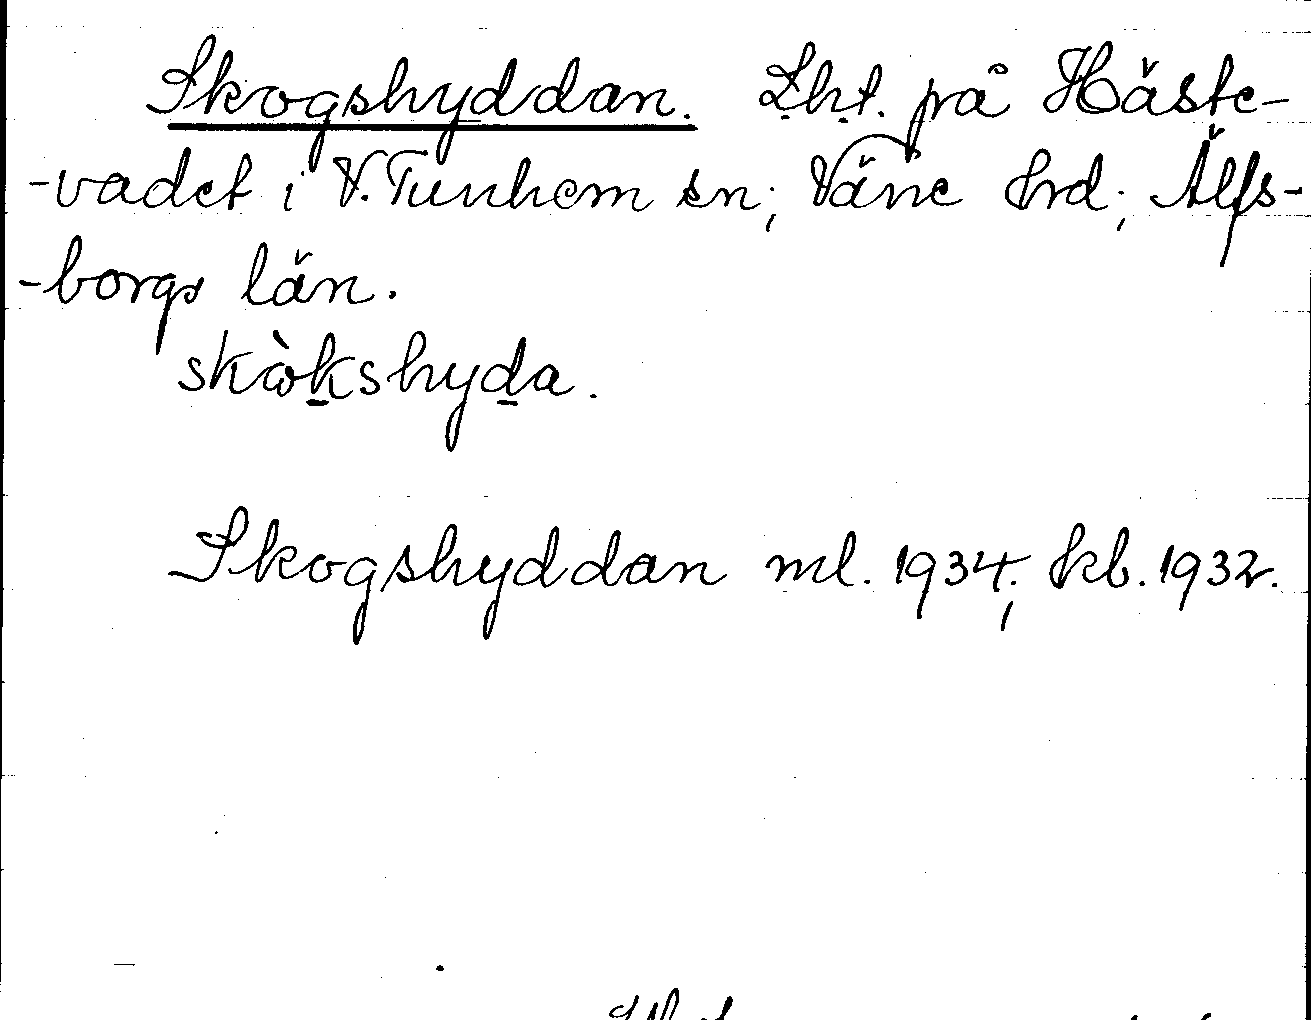 Skogshyddan. Lht. på Häste-
-vadet i V. Tunhem sn; Väne hrd; Älfs-
-borgs län.
skὼkshyda.
Skogshyddan ml. 1934; kb. 1932.